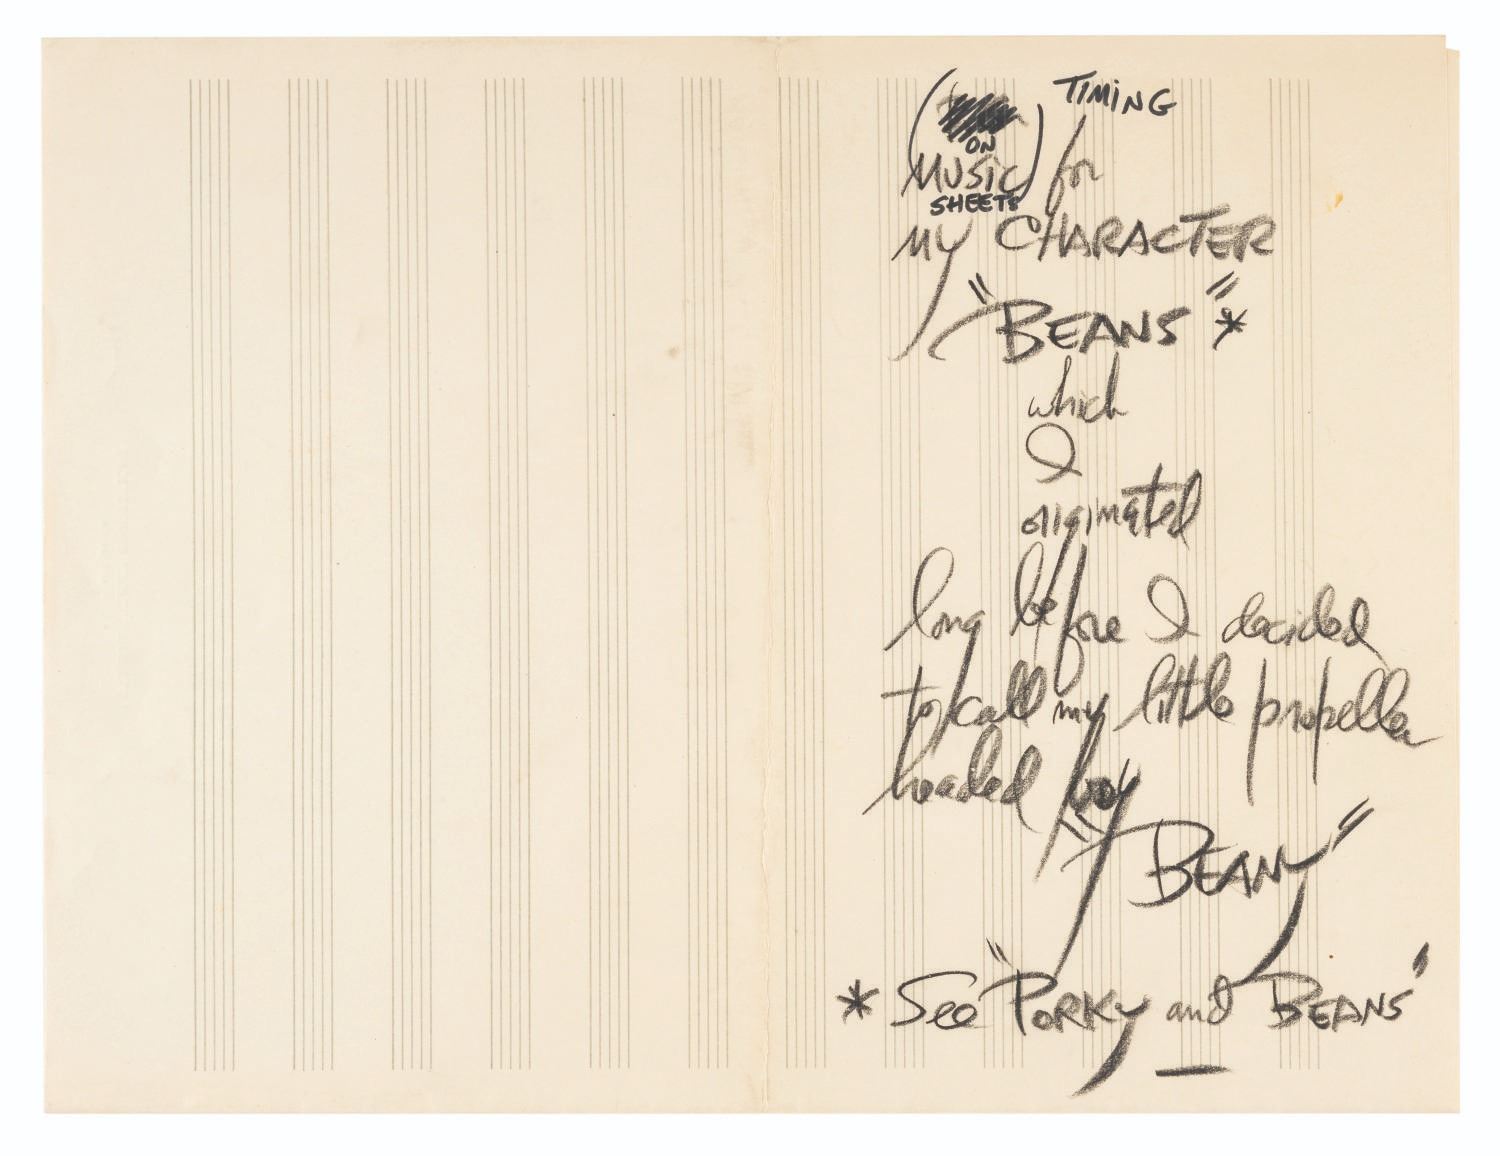 TIMING
(ON
MUSIC
SHEETS) for
my CHARACTER
"BEANS" *
which
I
originated
long before I decided
to call my little propeller
headed boy
"BEANY"
* See "PORKY and BEANS"